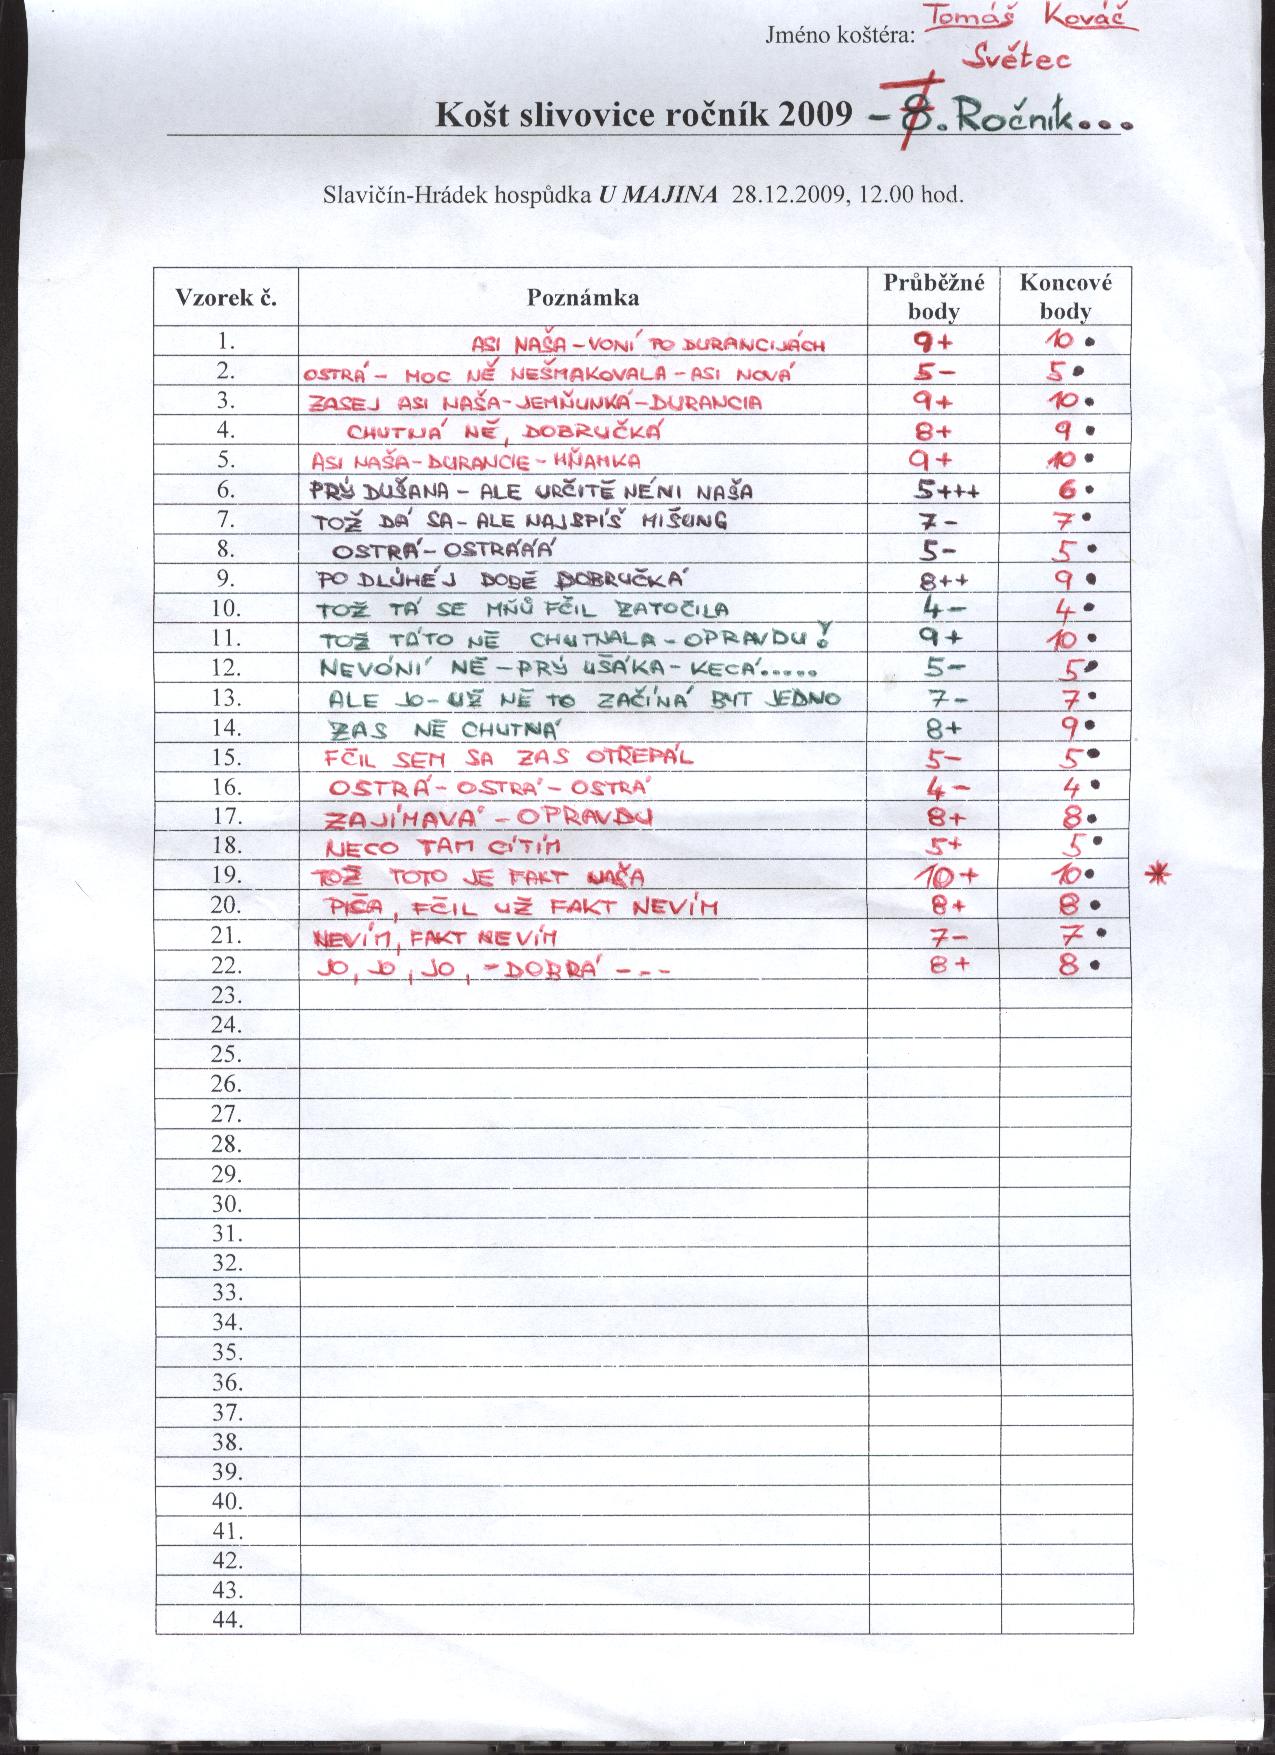 Jméno koštéra: Tomáš Kováč
Světec
Košt slivovice ročník 2009 - 7. Ročník...
Slavičín-Hrádek hospůdka U MAJINA 28.12.2009, 12.00 hod.
Vzorek č. Poznámka Průběžné body Koncové body
1. ASI NAŠA - VONÍ PO DURANCIJÁCH 9+ 10 •
2. OSTRÁ - MOC NĚ NEŠMAKOVALA - ASI NOVÁ 5- 5 •
3. ZASEJ ASI NAŠA - JEMŇUNKÁ - DURANCIA 9+ 10 •
4. CHUTNÁ NĚ, DOBRUČKÁ 8+ 9 •
5. ASI NAŠA - DURANCIE - MŇAMKA 9+ 10 •
6. PRÝ DUŠANA - ALE URČITĚ NÉNI NAŠA 5+++ 6 •
7. TOŽ DÁ SA - ALE NAJSPÍŠ MIŠUNG 7- 7 •
8. OSTRÁ - OSTRÁÁÁ 5- 5 •
9. PO DLÚHÉJ DOBĚ DOBRUČKÁ 8++ 9 •
10. TOŽ TÁ SE MŇŮ FČIL ZATOČILA 4- 4 •
11. TOŽ TÁTO NĚ CHUTNALA - OPRAVDU! 9+ 10 •
12. NEVONÍ NĚ - PRÝ UŠÁKA - KECÁ..... 5- 5 •
13. ALE JO - UŽ NĚ TO ZAČÍNÁ BYT JEDNO 7- 7 •
14. ZAS NĚ CHUTNÁ 8+ 9 •
15. FČIL SEM SA ZAS OTŘEPÁL 5- 5 •
16. OSTRÁ - OSTRÁ - OSTRÁ 4- 4 •
17. ZAJÍMAVÁ - OPRAVDU 8+ 8 •
18. NECO TAM CÍTÍM 5+ 5 •
19. TOŽ TOTO JE FAKT NAŠA 10+ 10 • *
20. PIČA, FČIL UŽ FAKT NEVÍM 8+ 8 •
21. NEVÍM, FAKT NEVÍM 7- 7 •
22. JO, JO, JO, - DOBRÁ - - - 8+ 8 •
23.
24.
25.
26.
27.
28.
29.
30.
31.
32.
33.
34.
35.
36.
37.
38.
39.
40.
41.
42.
43.
44.